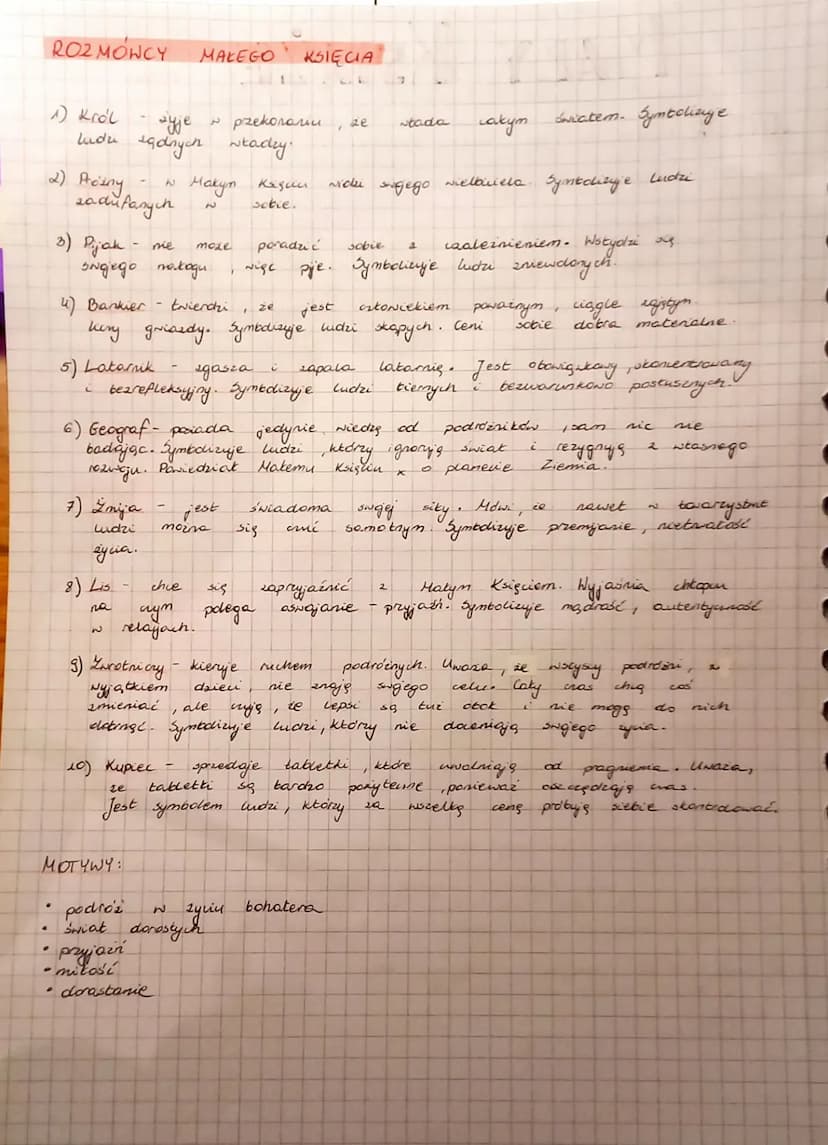 ROZMÓWCY MAŁEGO KSIĘCIA
1) Król - żyje w przekonaniu, że włada całym światem. Symbolizuje
ludzi żądnych władzy.
2) Próżny - w Małym Księciu widzi swojego wielbiciela. Symbolizuje ludzi
zadufanych w sobie.
3) Pijak - nie może poradzić sobie z uzależnieniem. Wstydzi się
swojego nałogu, więc pije. Symbolizuje ludzi zniewolonych.
4) Bankier - twierdzi, że jest człowiekiem poważnym, ciągle zajętym
liczy gwiazdy. Symbolizuje ludzi skąpych. Ceni sobie dobra materialne.
5) Latarnik - zgasza i zapala latarnię. Jest obowiązkowy, skoncentrowany
i bezrefleksyjny. Symbolizuje ludzi biernych i bezwarunkowo posłusznych.
6) Geograf - posiada jedynie wiedzę od podróżników, sam nic nie
badając. Symbolizuje ludzi, którzy ignorują świat i rezygnują z własnego
rozwoju. Powiedział Małemu Księciu x o planecie Ziemia.
7) Żmija - jest świadoma swojej siły. Mówi, że nawet w towarzystwie
ludzi można się czuć samotnym. Symbolizuje przemijanie, nietrwałość
życia.
8) Lis - chce się zaprzyjaźnić z Małym Księciem. Wyjaśnia chłopcu
na czym polega oswajanie - przyjaźń. Symbolizuje mądrość, autentyczność
w relacjach.
9) Zwrotniczy - kieruje ruchem podróżnych. Uważa, że wszyscy podróżni, z
wyjątkiem dzieci, nie znają swojego celu. Cały czas chcą coś
zmieniać, ale czują, że lepsi są tuż obok i nie mogą do nich
dobrnąć. Symbolizuje ludzi, którzy nie doceniają swojego życia.
10) Kupiec - sprzedaje tabletki, które uwalniają od pragnienia. Uważa,
że tabletki są bardzo pożyteczne, ponieważ oszczędzają czas.
Jest symbolem ludzi, którzy za wszelką cenę próbują siebie skontrolować.
MOTYWY:
• podróż w życiu bohatera
• świat dorosłych
• przyjaźń
• miłość
• dorastanie